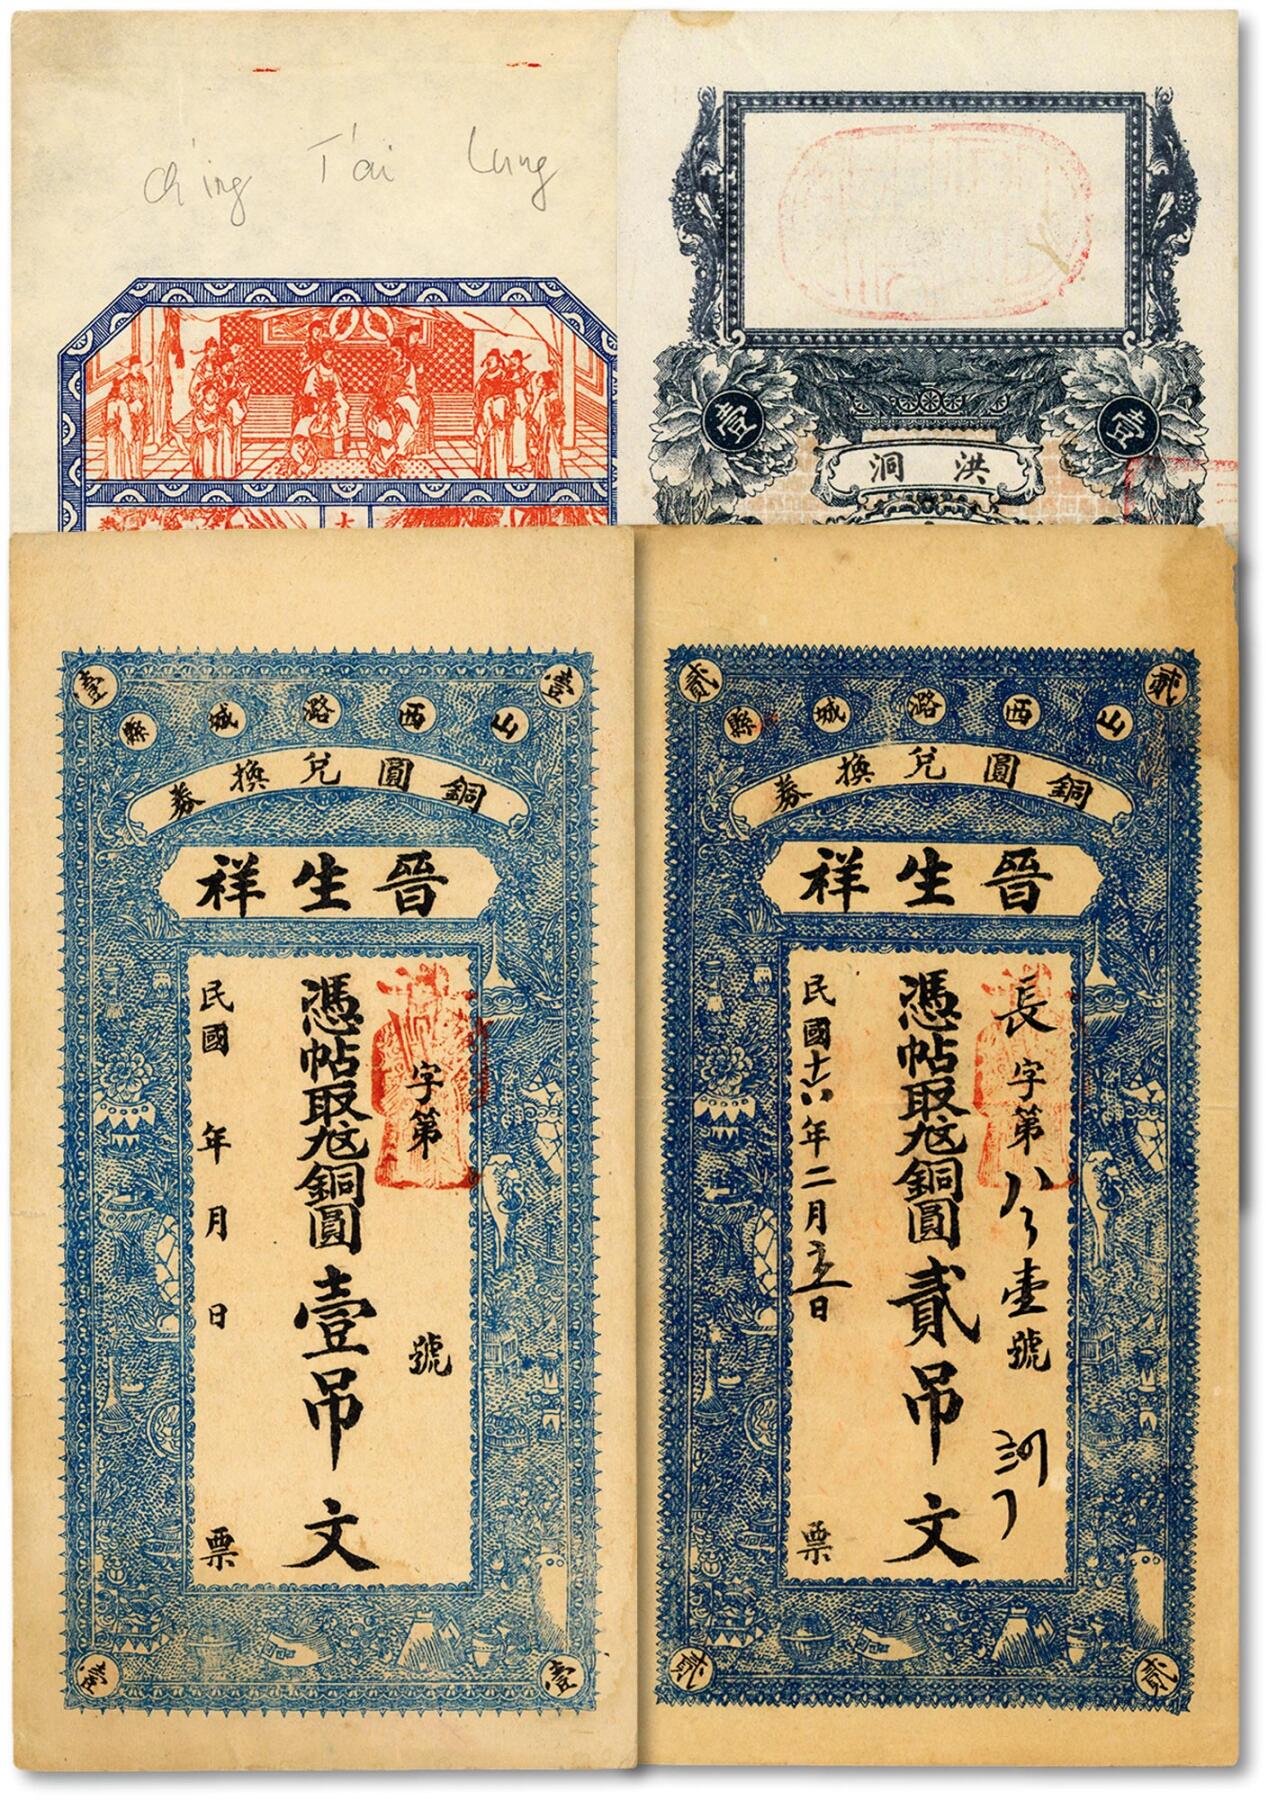 Ch'ing T'ai Lung
大
壹 壹
洪洞
壹 壹
山西潞城縣
銅圓兌換券
晉生祥
字第 號
憑帖取尨銅圓壹吊文
民國 年 月 日 票
壹 壹
貳 貳
山西潞城縣
銅圓兌換券
晉生祥
長字第 號
憑帖取尨銅圓貳吊文
民國十六年二月 日 票
貳 貳